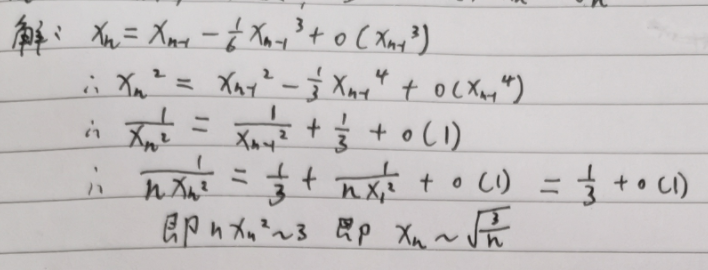 解: xₙ = xₙ₋₁ - 1/6 xₙ₋₁³ + o(xₙ₋₁³)
∴ xₙ² = xₙ₋₁² - 1/3 xₙ₋₁⁴ + o(xₙ₋₁⁴)
∴ 1/xₙ² = 1/xₙ₋₁² + 1/3 + o(1)
∴ 1/(n xₙ²) = 1/3 + 1/(n x₁²) + o(1) = 1/3 + o(1)
即 n xₙ² ~ 3 即 xₙ ~ √(3/n)